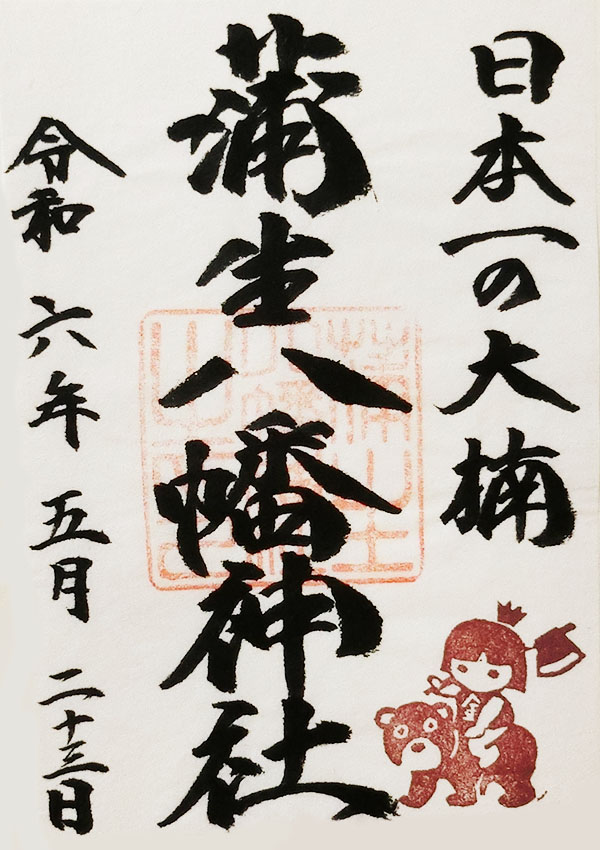 日本一の大楠
蒲生八幡神社
令和六年五月二十三日
金